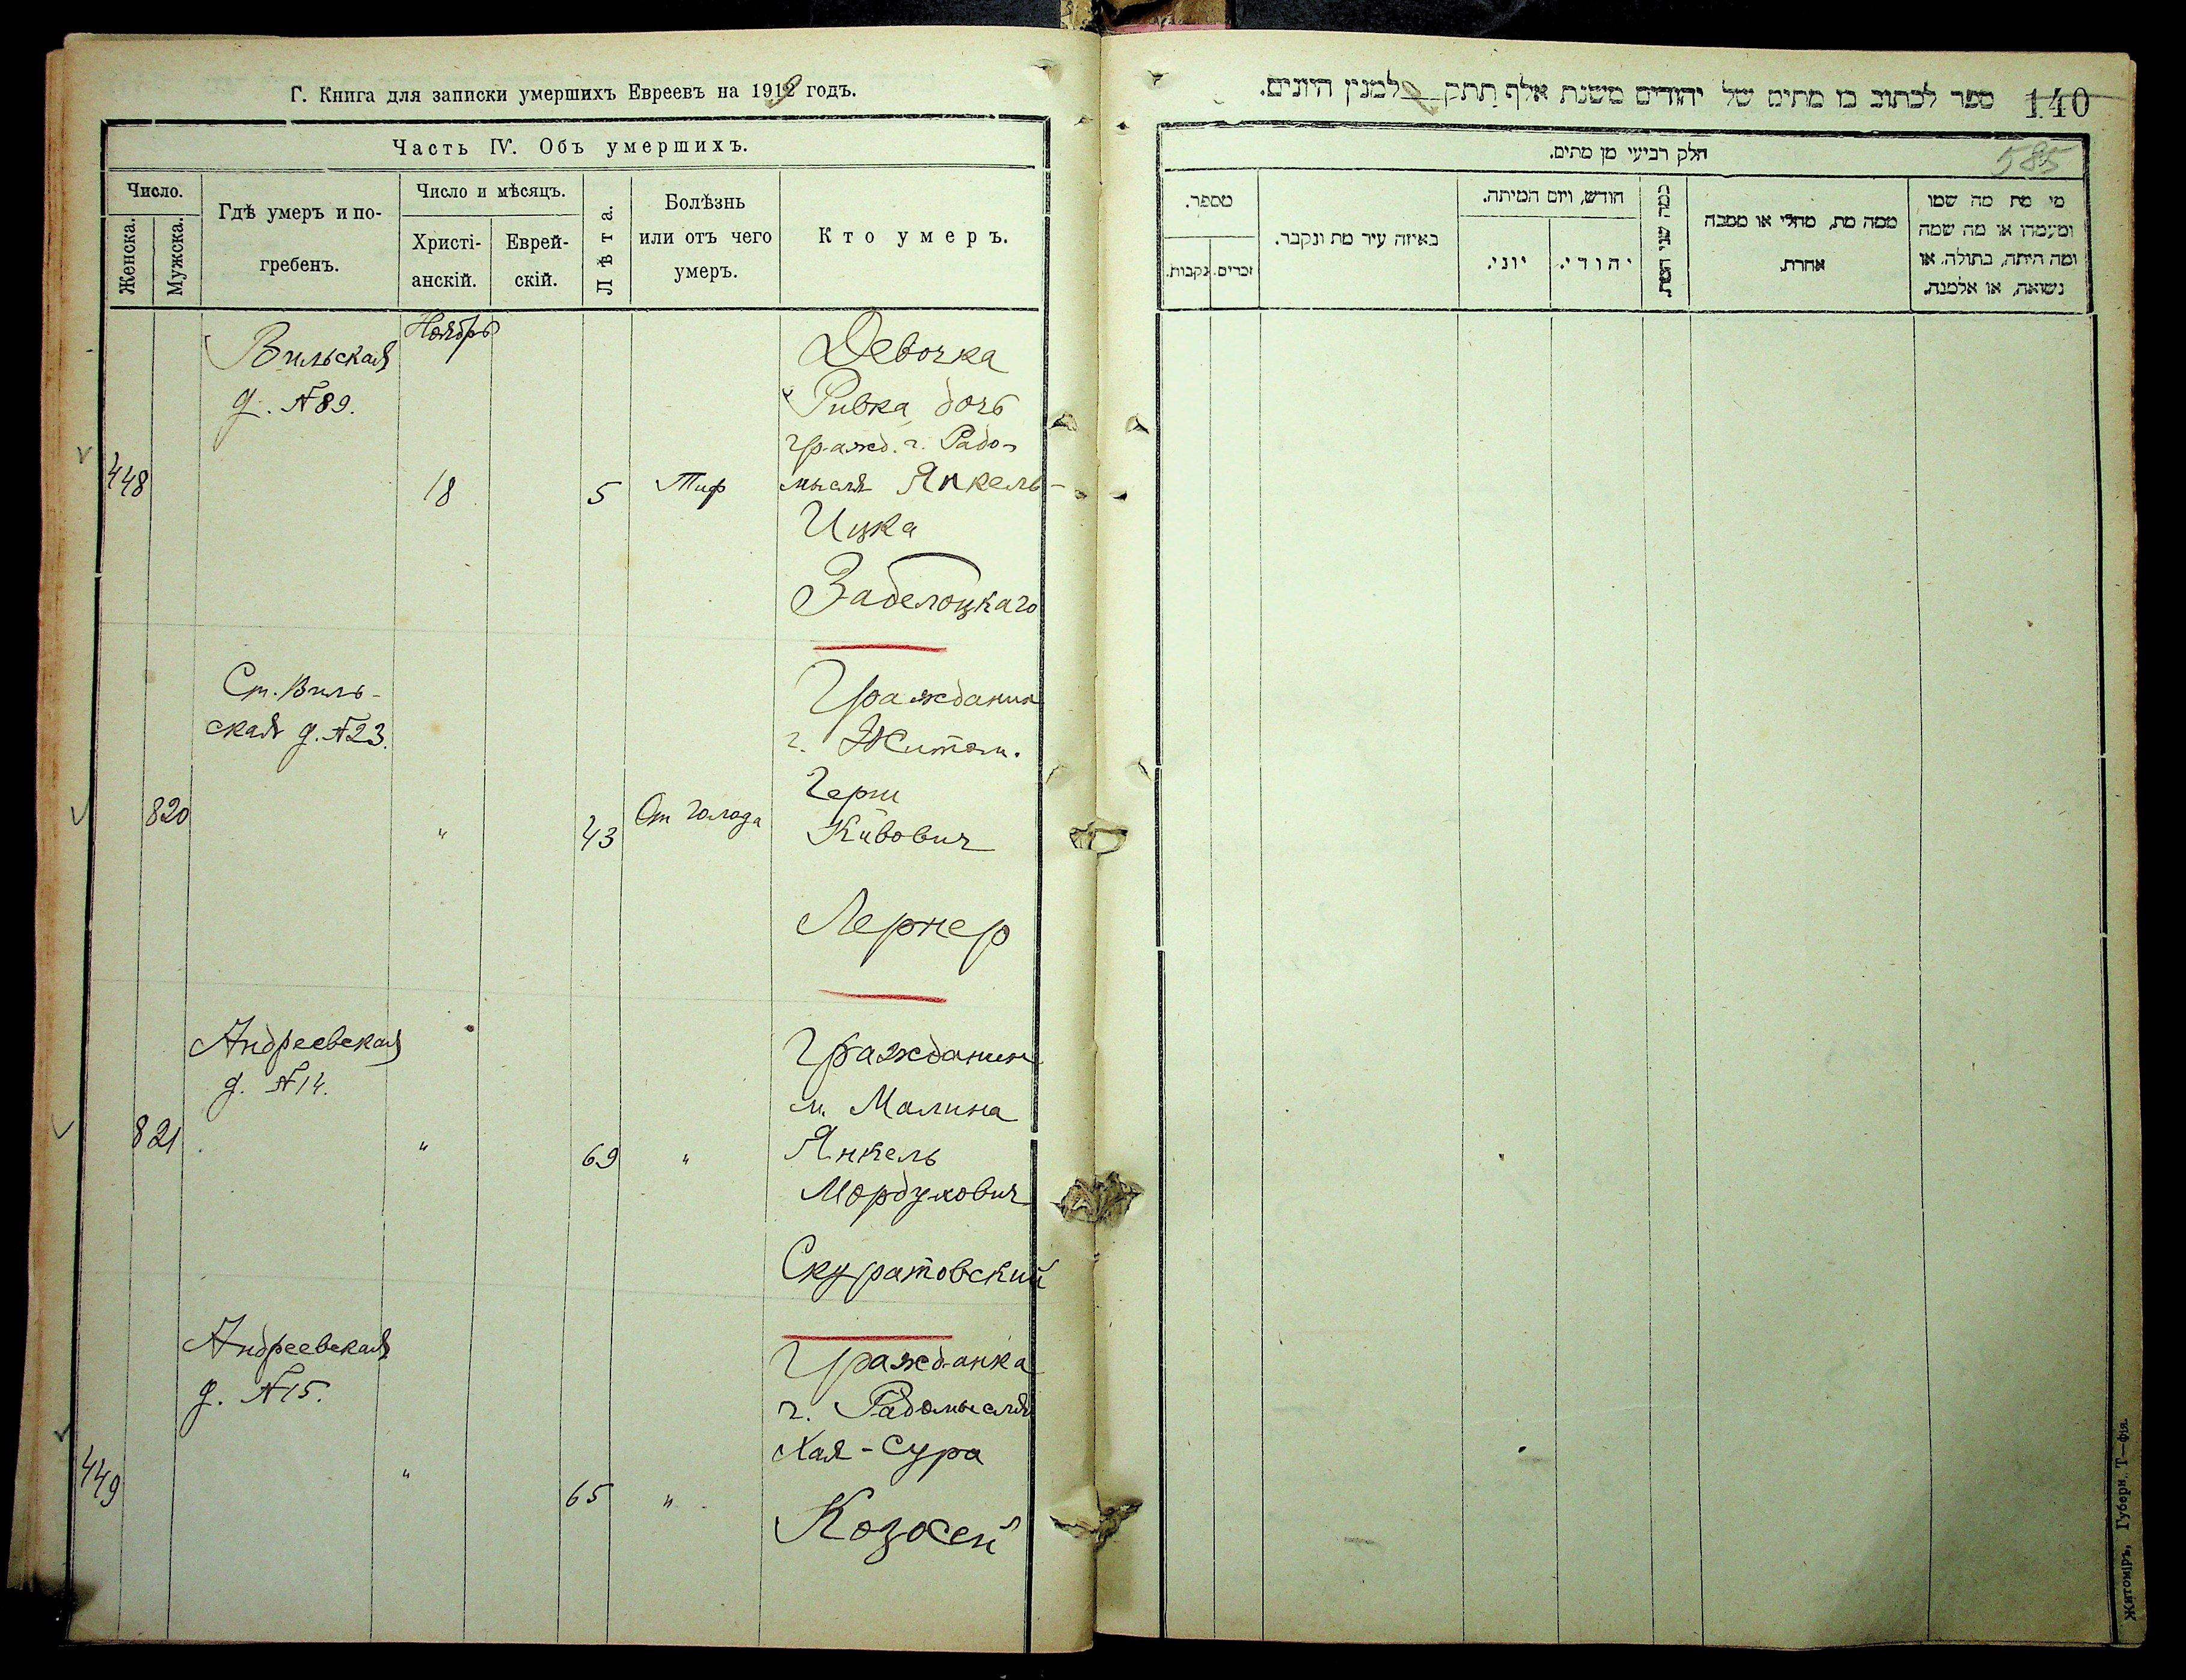 Г. Книга для записки умершихъ Евреевъ на 1919 годъ.
Часть IV. Объ умершихъ.
Число.
Женска.
Мужска.
Гдѣ умеръ и по-
гребенъ.
Число и мѣсяцъ.
Христі-
анскій.
Еврей-
скій.
Лѣта.
Болѣзнь
или отъ чего
умеръ.
Кто умеръ.
Вильская
д. №89.
Ноябрь
448
18
5
Тиф
Девочка
Ривка дочь
гражд. г. Радо-
мысля Янкель-
Ицка
Заделоцкаго
Ст. Виль-
ская д. №23.
820
"
43
От голода
Гражданин
г. Житом.
Герш
Кивович
Лернер
Андреевская
д. №14.
821
"
69
"
Гражданин
м. Малина
Янкель
Мордухович
Скуратовский
Андреевская
д. №15.
449
"
65
"
Гражданка
г. Радомысля
Хая-Сура
ספר לכתוב בו מתים של יהודים משנת אלף תתק למנין היונים.
140
585
חלק רביעי מן מתים.
מספר.
נקבות.
זכרים.
באיזה עיר מת ונקבר.
חודש, ויום המיתה.
יוני.
יהודי.
כמה שני המת.
ממה מת, מחלי או מסבה
אחרת.
מי מת מה שמו
ומעמדו או מה שמה
ומה היתה, בתולה או
נשואה, או אלמנה.
Житоміръ, Губерн. Т—фія.